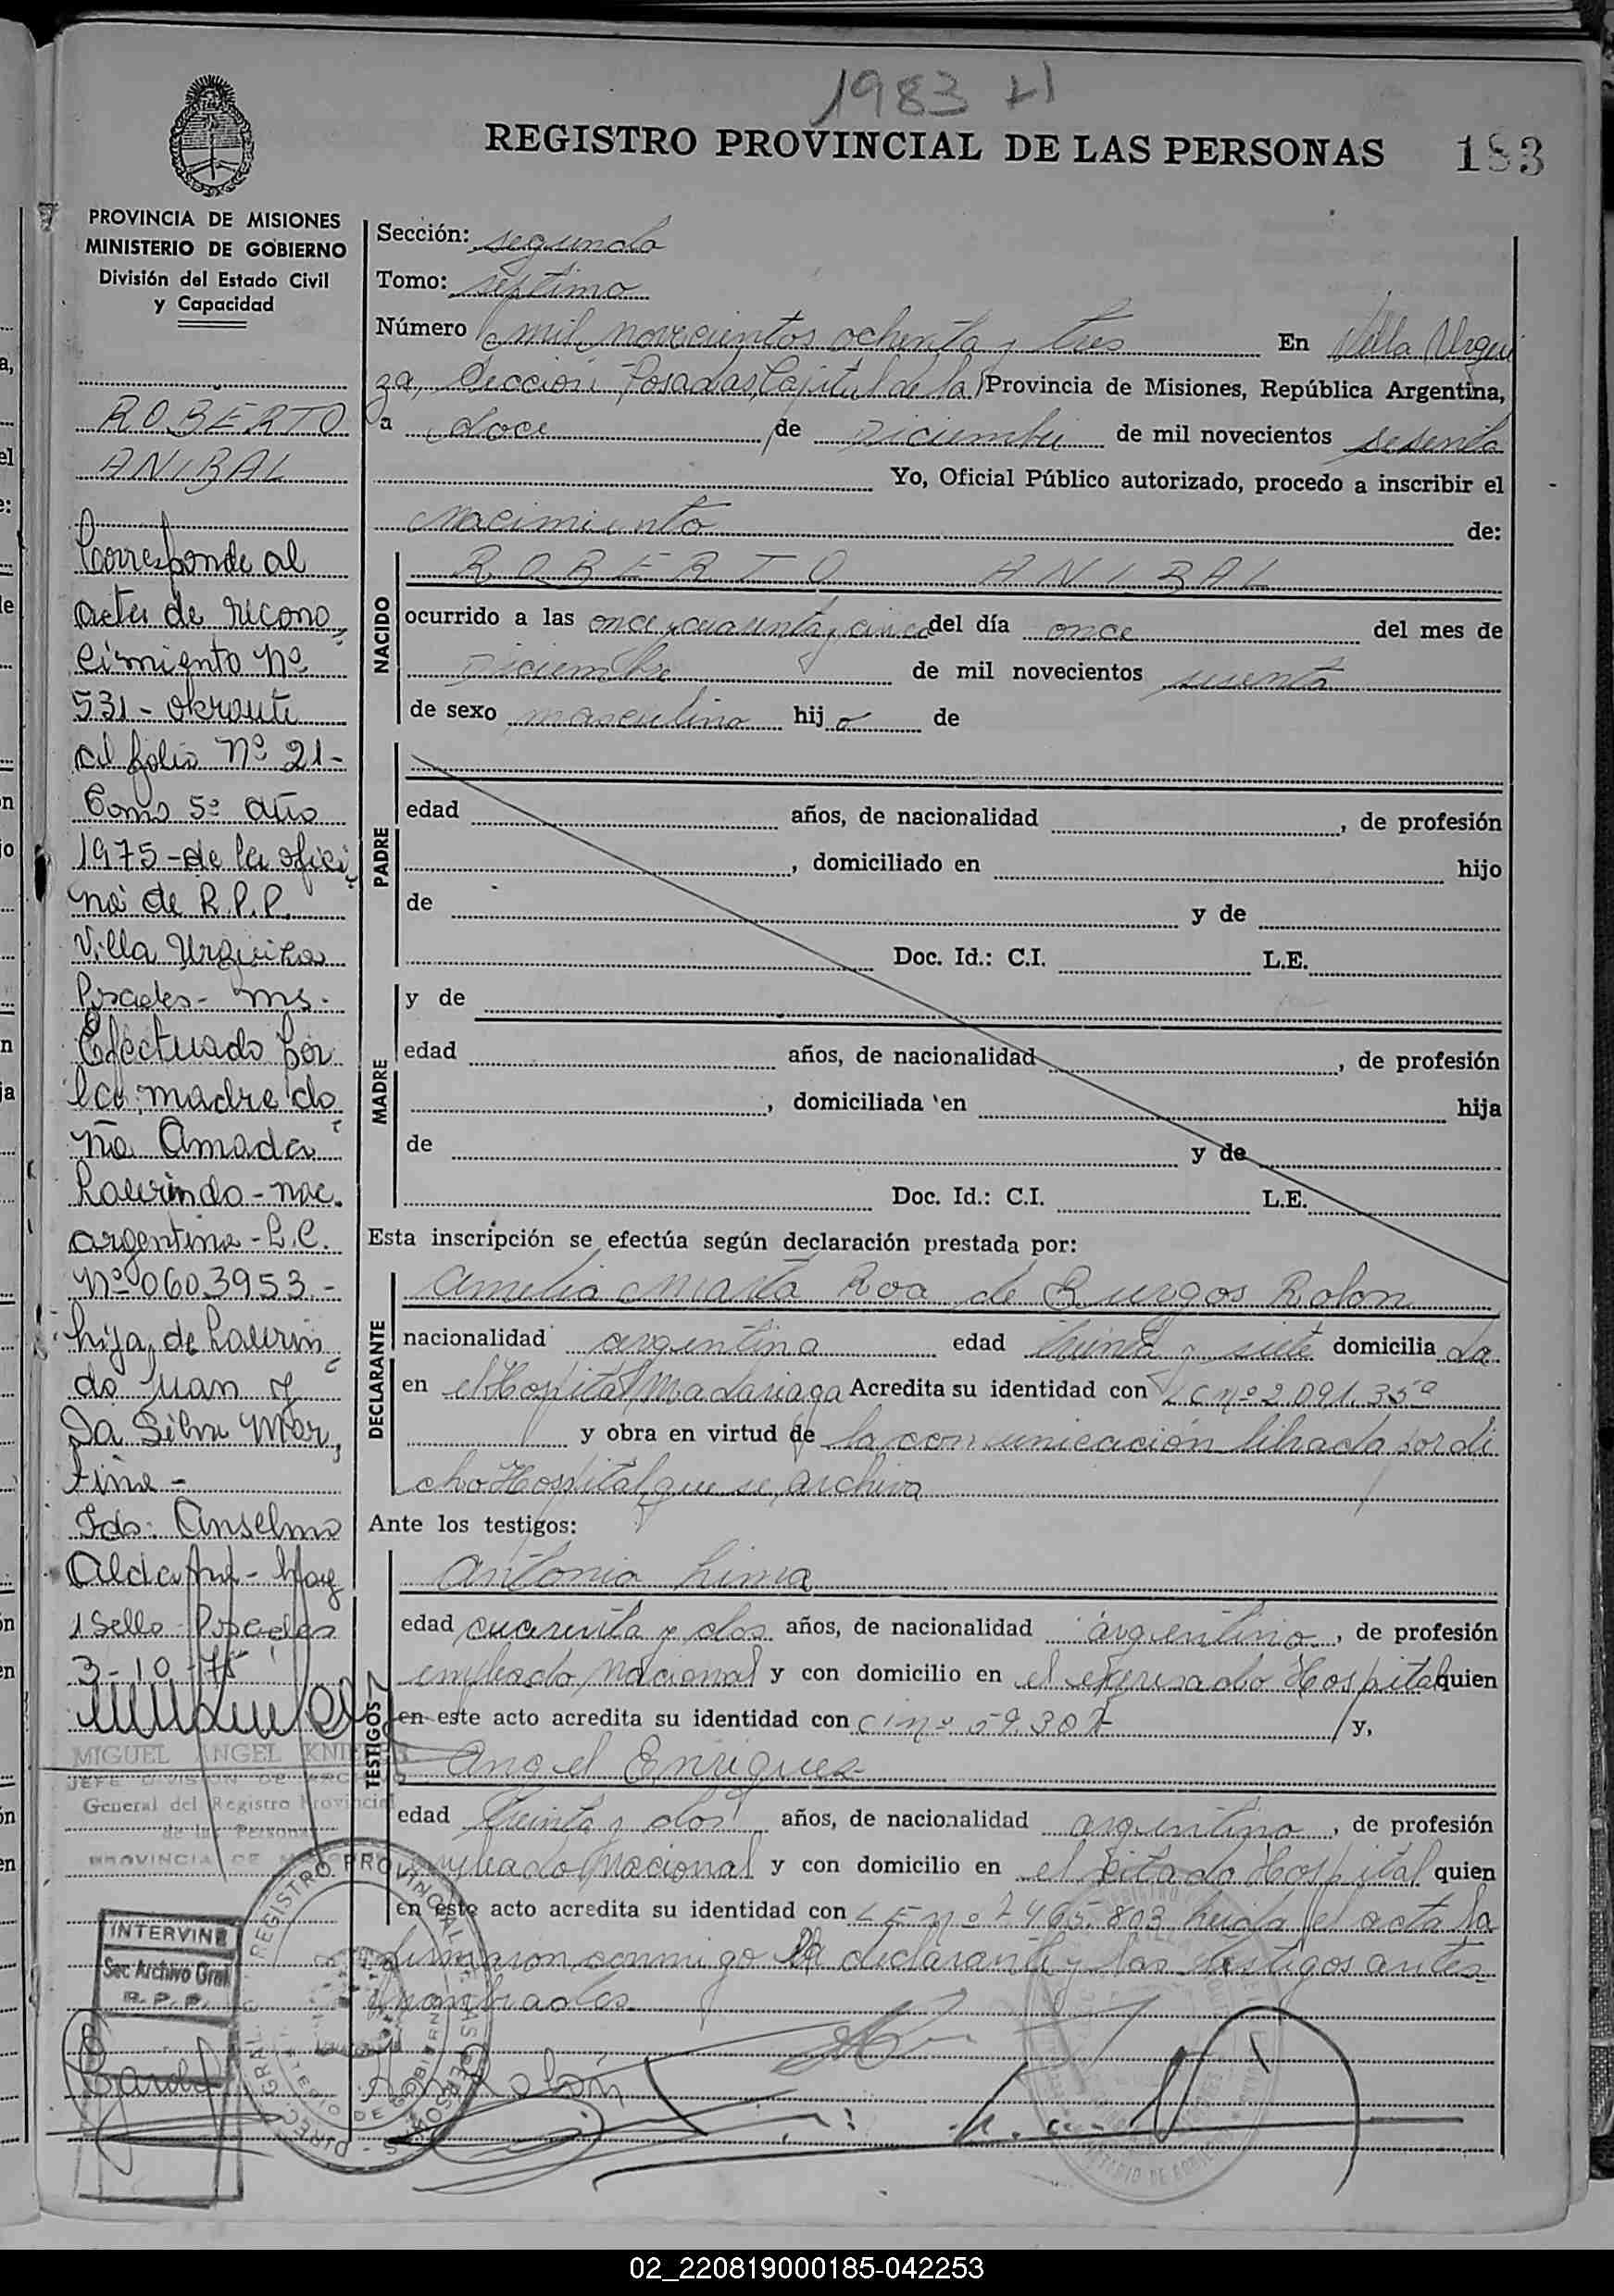 1983
REGISTRO PROVINCIAL DE LAS PERSONAS 183
PROVINCIA DE MISIONES
MINISTERIO DE GOBIERNO
División del Estado Civil
y Capacidad
ROBERTO
ANIBAL
Corresponde al
acta de recono
cimiento nº
531 - obrante
al folio nº 21-
Tomo 5º año
1975 - de la ofici
na de R.P.P.
Villa Urquiza
Posadas - ms.
Efectuado por
la madre do
ña Amada
Laurindo - nac.
argentina - L.C.
nº 0603953.-
hija de Laurin
do Juan y
Da Silva Mar
tina -
Fdo: Anselmo
1 Sello Posadas
3-10-75
MIGUEL ANGEL
JEFE DIVISION DE ARCHIVO
General del Registro Provincial
de las Personas
PROVINCIA DE
INTERVINE
Sec Archivo Gral
R. P. P.
Sección: segunda
Tomo: septimo
Número mil novecientos ochenta y tres En Villa Urqui
za, Sección Posadas, Capital de la Provincia de Misiones, República Argentina,
a doce de Diciembre de mil novecientos sesenta
Yo, Oficial Público autorizado, procedo a inscribir el
nacimiento de:
NACIDO
ROBERTO ANIBAL
ocurrido a las once y cuarenta y cinco del día once del mes de
Diciembre de mil novecientos sesenta
de sexo masculino hijo de
PADRE
edad años, de nacionalidad , de profesión
, domiciliado en hijo
de y de
Doc. Id.: C.I. L.E.
MADRE
y de
edad años, de nacionalidad , de profesión
, domiciliada en hija
de y de
Doc. Id.: C.I. L.E.
Esta inscripción se efectúa según declaración prestada por:
DECLARANTE
Amelia Marta Roa de Burgos Rolon
nacionalidad argentina edad treinta y siete domicilia da
en el Hospital Madariaga Acredita su identidad con L C nº 2.091.35
y obra en virtud de la comunicación librada por di
cho Hospital que se archiva
Ante los testigos:
TESTIGOS
Antonio Lima
edad cuarenta y dos años, de nacionalidad argentino, de profesión
empleado nacional y con domicilio en el expresado Hospital quien
en este acto acredita su identidad con C I nº 59.307 y,
Angel Enriquez
edad treinta y dos años, de nacionalidad argentino, de profesión
empleado nacional y con domicilio en el citado Hospital quien
en este acto acredita su identidad con L E nº 7.465.803 leida el acta la
firmaron conmigo la declarante y los testigos antes
nombrados.
02_220819000185-042253